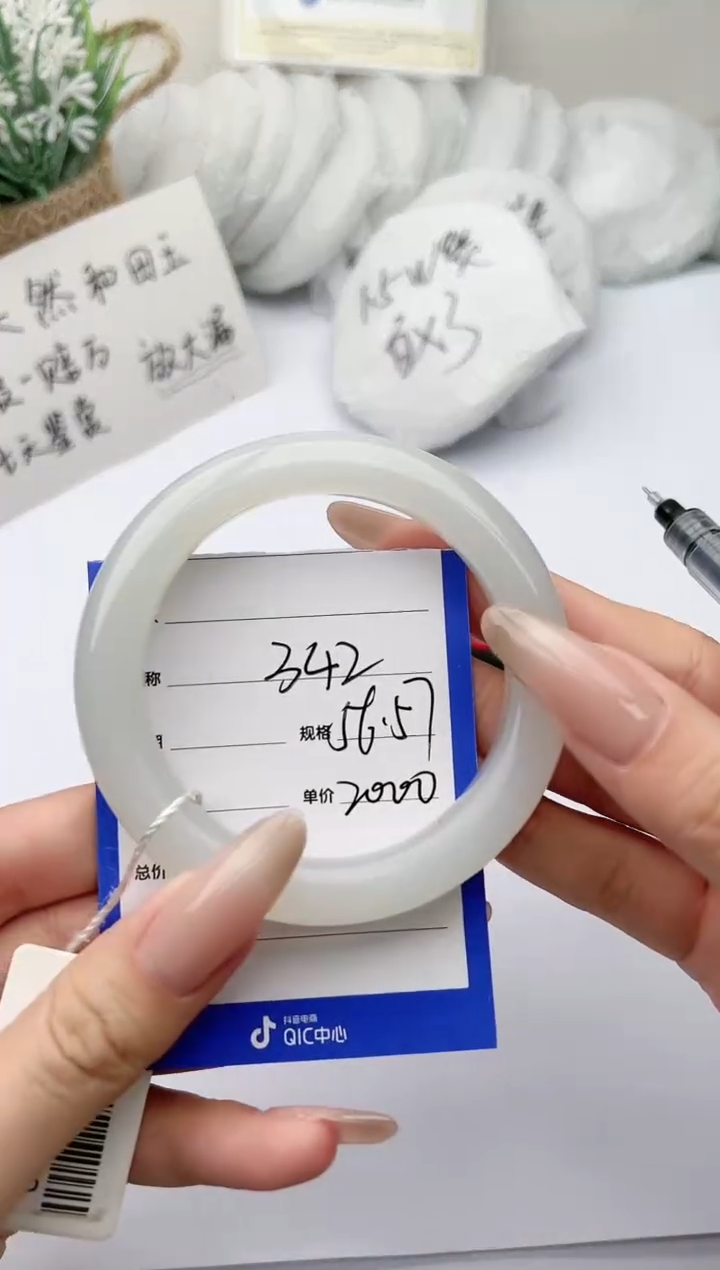 然和田玉
一赔万 放大漏
鉴赏
称 342
规格 56.57
单价 2000
总价
抖音电商
QIC中心